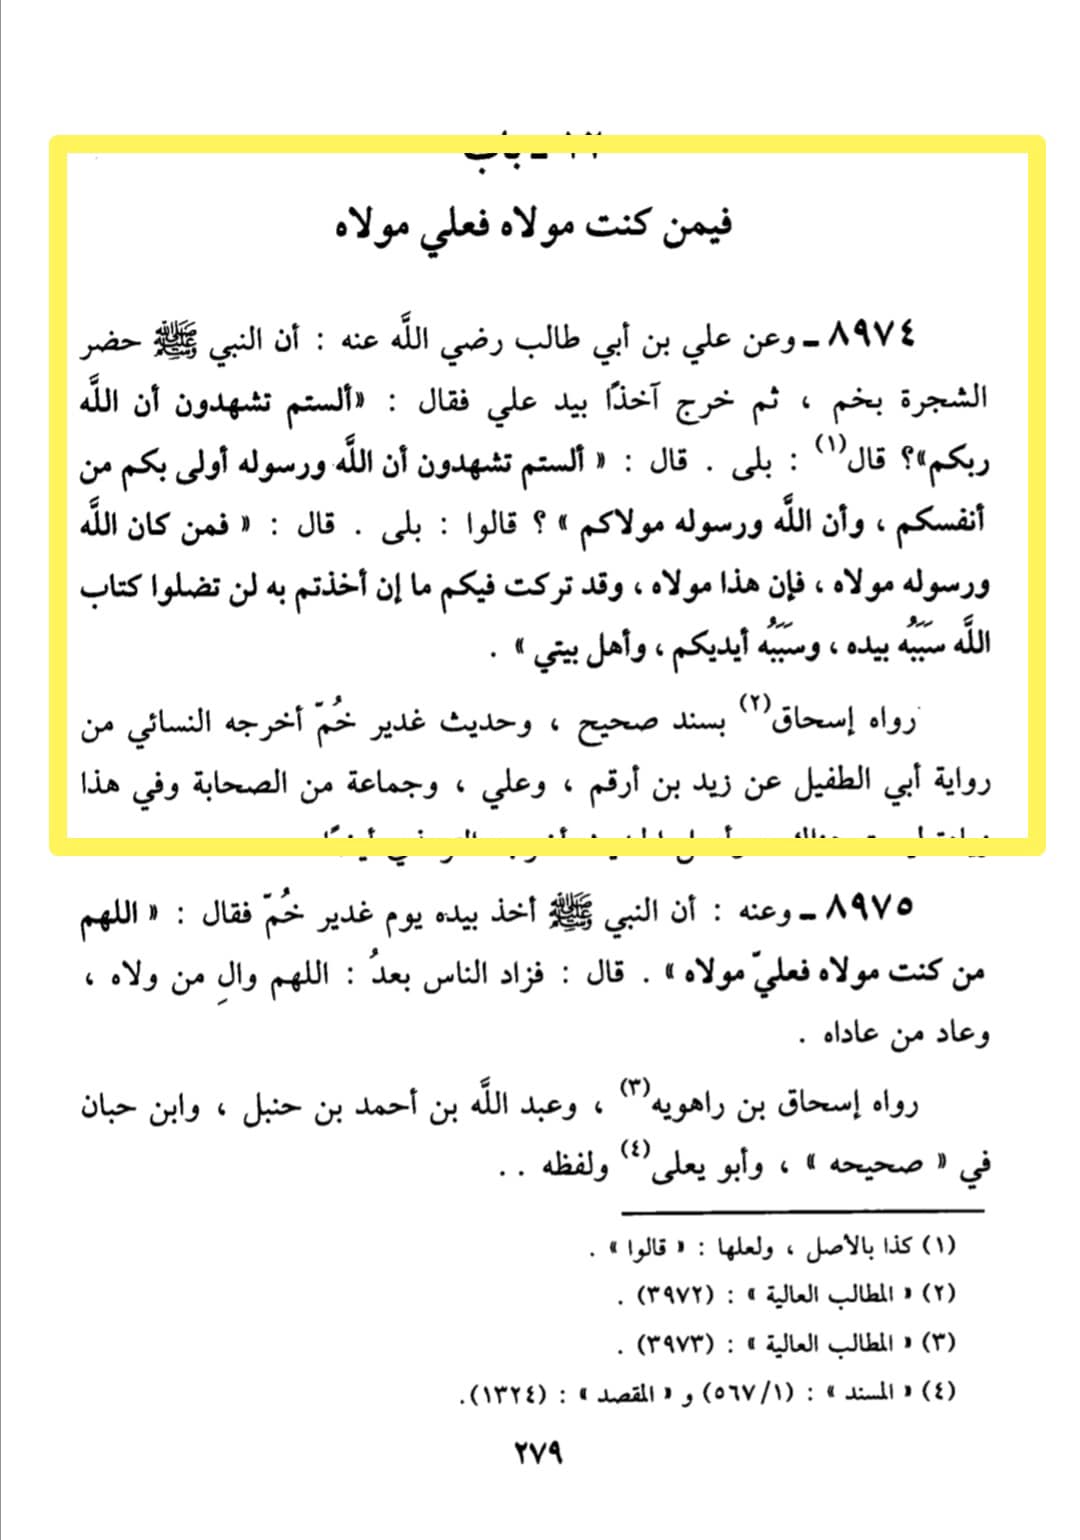 باب
فيمن كنت مولاه فعلي مولاه
٨٩٧٤ ـ وعن علي بن أبي طالب رضي اللَّه عنه : أن النبي ﷺ حضر
الشجرة بخم ، ثم خرج آخذًا بيد علي فقال : «ألستم تشهدون أن اللَّه
ربكم»؟ قال(١) : بلى . قال : « ألستم تشهدون أن اللَّه ورسوله أولى بكم من
أنفسكم ، وأن اللَّه ورسوله مولاكم » ؟ قالوا : بلى . قال : « فمن كان اللَّه
ورسوله مولاه ، فإن هذا مولاه ، وقد تركت فيكم ما إن أخذتم به لن تضلوا كتاب
اللَّه سَبَبُه بيده ، وسَبَبُه أيديكم ، وأهل بيتي » .
رواه إسحاق(٢) بسند صحيح ، وحديث غدير خُمّ أخرجه النسائي من
رواية أبي الطفيل عن زيد بن أرقم ، وعلي ، وجماعة من الصحابة وفي هذا
٨٩٧٥ ـ وعنه : أن النبي ﷺ أخذ بيده يوم غدير خُمّ فقال : « اللهم
من كنت مولاه فعليّ مولاه » . قال : فزاد الناس بعدُ : اللهم والِ من ولاه ،
وعاد من عاداه .
رواه إسحاق بن راهويه(٣) ، وعبد اللَّه بن أحمد بن حنبل ، وابن حبان
في « صحيحه » ، وأبو يعلى(٤) ولفظه . .
(١) كذا بالأصل ، ولعلها : « قالوا » .
(٢) « المطالب العالية » : (٣٩٧٢) .
(٣) « المطالب العالية » : (٣٩٧٣) .
(٤) « المسند » : (٥٦٧/١) و « المقصد » : (١٣٢٤).
٢٧٩